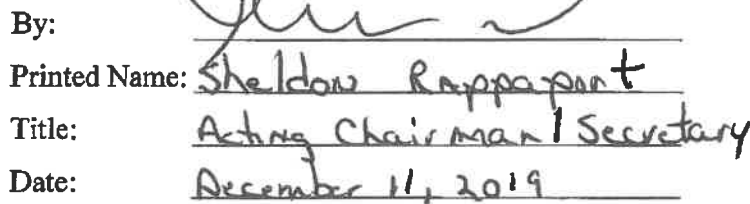 By:
Printed Name: Sheldon Rappaport
Title: Acting Chairman / Secretary
Date: December 11, 2019